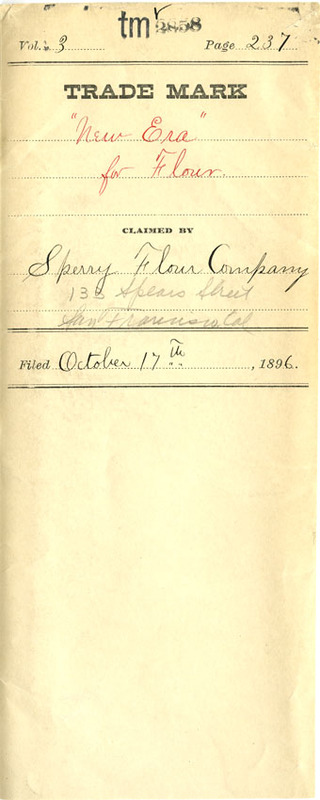 tm 2858
Vol. 3 Page 237
TRADE MARK
"New Era"
for Flour.
CLAIMED BY
Sperry Flour Company
133 Spears Street
San Francisco Cal
Filed October 17th, 1896.